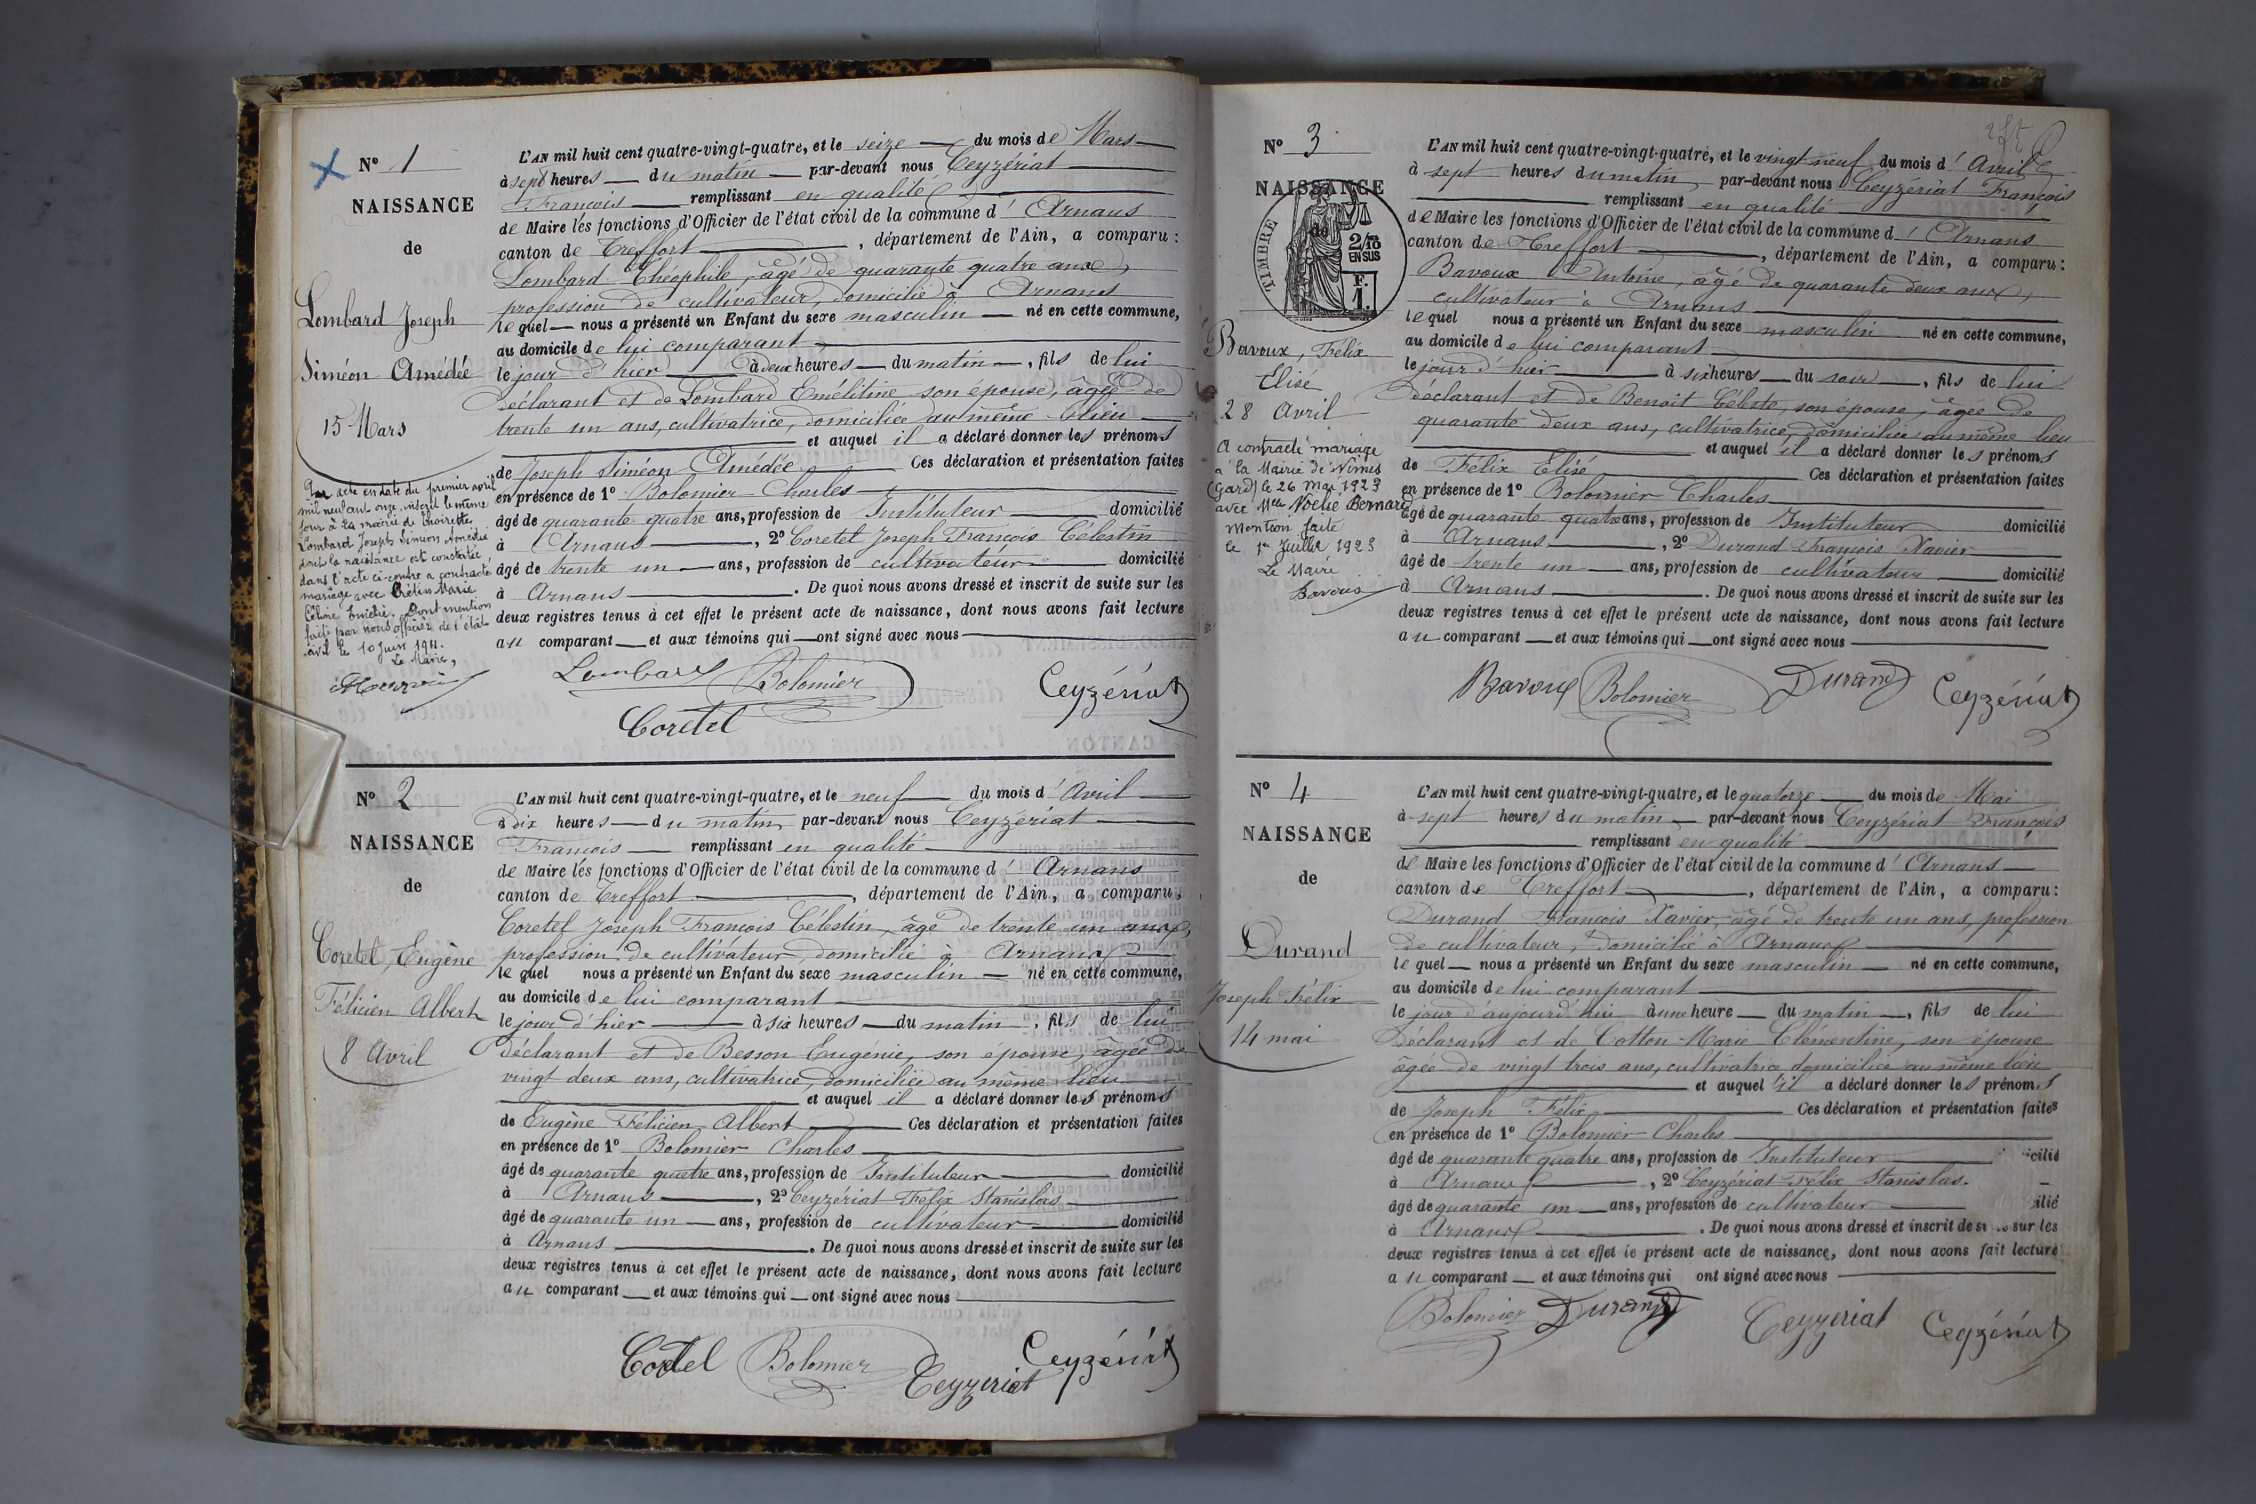 N° 1
NAISSANCE
de
Lombard Joseph
Siméon Amédée
15 Mars
Par acte en date du premier avril
mil neuf cent onze, inscrit le même
jour à la mairie de Thoirette
Lombard Joseph Siméon Amédée
dont la naissance est constatée
dans l'acte ci-contre a contracté
mariage avec Crétin Marie
Céline Emélie. Dont mention
faite par nous officier de l'état
civil le 10 Juin 1911.
Le Maire,
L'AN mil huit cent quatre-vingt-quatre, et le seize du mois de Mars
à sept heures du matin par-devant nous Ceyzériat
François remplissant en qualité
de Maire les fonctions d'Officier de l'état civil de la commune d'Arnans
canton de Treffort, département de l'Ain, a comparu:
Lombard Théophile, âgé de quarante quatre ans,
profession de cultivateur, domicilié à Arnans
lequel nous a présenté un Enfant du sexe masculin né en cette commune,
au domicile de lui comparant
le jour d'hier à deux heures du matin, fils de lui
déclarant et de Lombard Emélitine son épouse, âgée de
trente un ans, cultivatrice, domiciliée au même lieu
et auquel il a déclaré donner les prénoms
de Joseph Siméon Amédée Ces déclaration et présentation faites
en présence de 1° Bolomier Charles
âgé de quarante quatre ans, profession de Instituteur domicilié
à Arnans, 2° Coretel Joseph François Célestin
âgé de trente un ans, profession de cultivateur domicilié
à Arnans. De quoi nous avons dressé et inscrit de suite sur les
deux registres tenus à cet effet le présent acte de naissance, dont nous avons fait lecture
au comparant et aux témoins qui ont signé avec nous
Lombard Bolomier Ceyzériat
Coretel
N° 2
NAISSANCE
de
Coretel, Eugène
Félicien Albert
8 Avril
L'AN mil huit cent quatre-vingt-quatre, et le neuf du mois d'Avril
à dix heures du matin par-devant nous Ceyzériat
François remplissant en qualité
de Maire les fonctions d'Officier de l'état civil de la commune d'Arnans
canton de Treffort, département de l'Ain, a comparu:
Coretel Joseph François Célestin, âgé de trente un ans,
profession de cultivateur, domicilié à Arnans
lequel nous a présenté un Enfant du sexe masculin né en cette commune,
au domicile de lui comparant
le jour d'hier à six heures du matin, fils de lui
déclarant et de Besson Eugénie, son épouse, âgée de
vingt deux ans, cultivatrice, domiciliée au même lieu
et auquel il a déclaré donner les prénoms
de Eugène Félicien Albert Ces déclaration et présentation faites
en présence de 1° Bolomier Charles
âgé de quarante quatre ans, profession de Instituteur domicilié
à Arnans, 2° Ceyzériat Félix Stanislas
âgé de quarante un ans, profession de cultivateur domicilié
à Arnans. De quoi nous avons dressé et inscrit de suite sur les
deux registres tenus à cet effet le présent acte de naissance, dont nous avons fait lecture
au comparant et aux témoins qui ont signé avec nous
Coretel Bolomier Ceyzeriat Ceyzériat
N° 3
NAISSANCE
de
TIMBRE
2/10 EN SUS
F. 1.
Bavoux, Félix
Elisé
28 Avril
A contracté mariage
à la Mairie de Nimes
(Gard) le 26 Mai 1923
avec Mlle Noélie Bernard
Mention faite
le 1er Juillet 1923
Le Maire
Bavoux
L'AN mil huit cent quatre-vingt-quatre, et le vingt neuf du mois d'Avril
à sept heures du matin par-devant nous Ceyzériat François
remplissant en qualité
de Maire les fonctions d'Officier de l'état civil de la commune d'Arnans
canton de Treffort, département de l'Ain, a comparu:
Bavoux Antoine, âgé de quarante deux ans,
cultivateur à Arnans
lequel nous a présenté un Enfant du sexe masculin né en cette commune,
au domicile de lui comparant
le jour d'hier à six heures du soir, fils de lui
déclarant et de Benoit Céleste, son épouse, âgée de
quarante deux ans, cultivatrice, domiciliée au même lieu
et auquel il a déclaré donner les prénoms
de Félix Elisé Ces déclaration et présentation faites
en présence de 1° Bolomier Charles
âgé de quarante quatre ans, profession de Instituteur domicilié
à Arnans, 2° Durand François Xavier
âgé de trente un ans, profession de cultivateur domicilié
à Arnans. De quoi nous avons dressé et inscrit de suite sur les
deux registres tenus à cet effet le présent acte de naissance, dont nous avons fait lecture
au comparant et aux témoins qui ont signé avec nous
Bavoux Bolomier Durand Ceyzériat
N° 4
NAISSANCE
de
Durand
Joseph Félix
14 mai
L'AN mil huit cent quatre-vingt-quatre, et le quatorze du mois de Mai
à sept heures du matin par-devant nous Ceyzériat François
remplissant en qualité
de Maire les fonctions d'Officier de l'état civil de la commune d'Arnans
canton de Treffort, département de l'Ain, a comparu:
Durand François Xavier, âgé de trente un ans, profession
de cultivateur, domicilié à Arnans
lequel nous a présenté un Enfant du sexe masculin né en cette commune,
au domicile de lui comparant
le jour d'aujourd'hui à une heure du matin, fils de lui
déclarant et de Cotton Marie Clémentine, son épouse
âgée de vingt trois ans, cultivatrice domiciliée au même lieu
et auquel il a déclaré donner les prénoms
de Joseph Félix Ces déclaration et présentation faites
en présence de 1° Bolomier Charles
âgé de quarante quatre ans, profession de Instituteur icilié
à Arnans, 2° Ceyzériat Félix Stanislas.
âgé de quarante un ans, profession de cultivateur ilié
à Arnans. De quoi nous avons dressé et inscrit de s sur les
deux registres tenus à cet effet le présent acte de naissance, dont nous avons fait lecture
au comparant et aux témoins qui ont signé avec nous
Bolomier Durand Ceyzeriat Ceyzériat